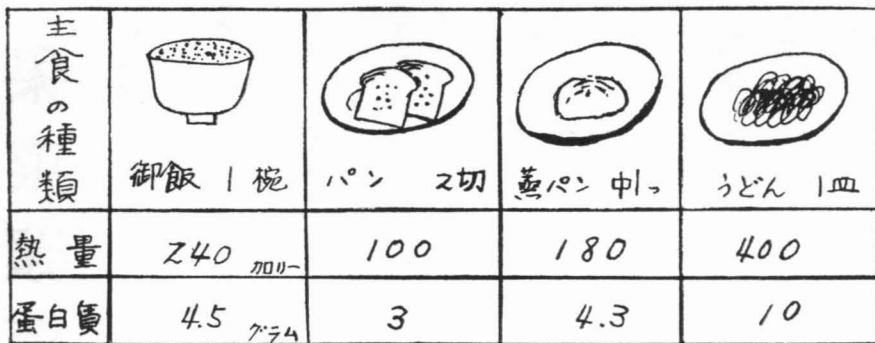 主食の種類
御飯 1椀
パン 2切
蒸パン 中1つ
うどん 1皿
熱量 240カロリー 100 180 400
蛋白質 4.5グラム 3 4.3 10